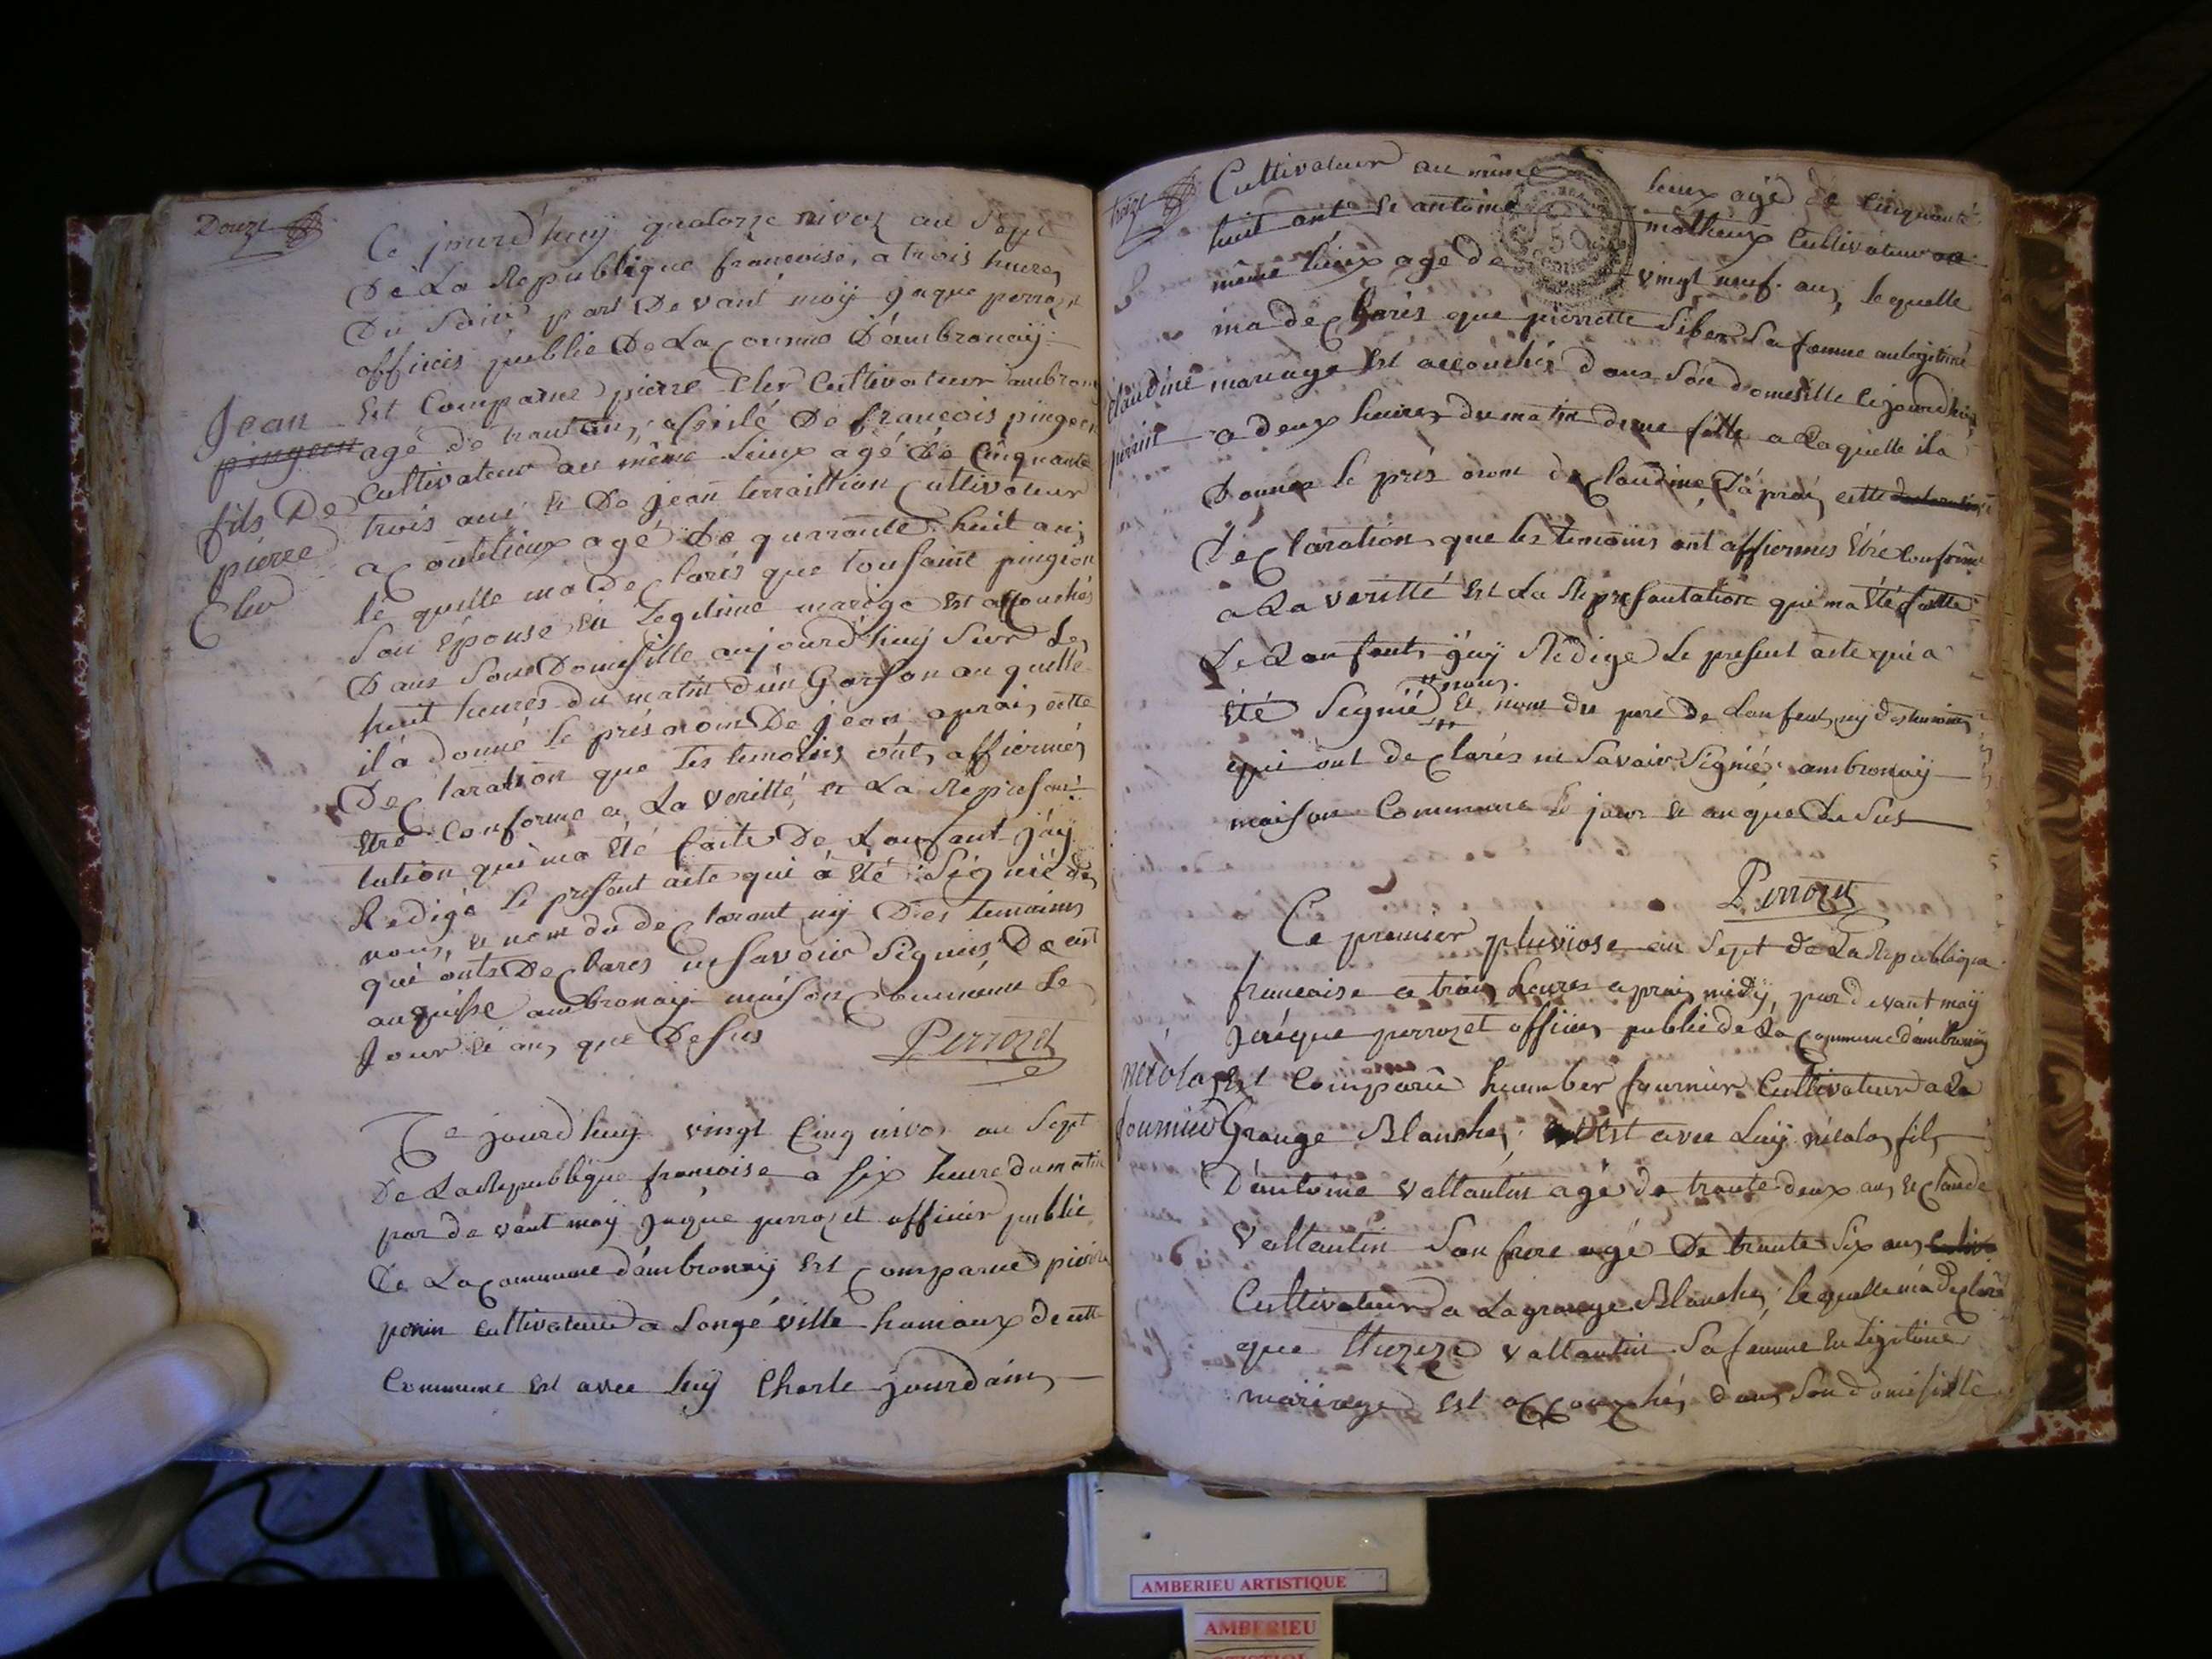 Douze
Ce jourd'huy quatorze nivoz an Sept
De La Republique francoise, a trois heures
Du Soire part De vant moÿ Jaque perrozet
officié publie De La Commune D'ambronaÿ
Est Comparue pierre Cler Cultivateur ambronaÿ
Jean
pingeon
fils De
pierre
Cler
agé de trantans, asisté De francois pingeon
Cultivateur au même Lieux agé de Cinquante
trois ans et De Jean terraillion Cultivateur
agé De quarrante huit ans
le quelle ma De clarés que tousaint pingeon
Son Épouse en Legitime mariage Est accouchés
Dans Son Domesille aujourd'huÿ Sur Les
huit heures du matin d'un Garson au quelle
il a donné le prés nom De Jean aprais cette
De claration que Les temoins ont affiermés
Etre Conforme a La veritté, et La Représen
tation qui ma Été faite De Lanfant j'aÿ
Redigé Le présent acte qui a Été Signié de
nous, et nom du de clarant nÿ Des temoins
qui onts De clares ne Savoir Signies De cest
anquisse ambronaÿ maison Commune Le
Jour et ans que Desus
Perrozet
Ce jourd'huy vingt Cinq nivos an Sept
De La Republique francoise a six heure du matin
par de vant moÿ Jaque perrozet officier publie
De La Commune d'ambronaÿ Est comparue pierre
perrin cultivateur a Longéville hamaux de cette
Commune Est avec luÿ Charle Jourdain
treize
Cultivateur au même lieux agé de cinquante
huit ant et antoine matheux Cultivateur au
même lieux age de vingt neuf ans, lequelle
ma de clarés que pierrette Siber Sa femme en legitime
claudine
perrin
mariage Est accouchés dans Son domesille le jourdhui
a deux heures du matin dune fille a Laquelle il a
Donnés le prés nom de claudine, d'aprais cette
De claration que les temoins ont affiermés Être conforme
a La veritté Est La Represantation qui ma Été faitte
De Lanfant, j'aÿ Redige Le present acte qui a
Été Signié nous. Et nom du pere De Lanfent, nÿ des temoins
qui ont de clarés ne Savoir Signiés ambronaÿ
maison Commune le jour et an que De Sus
Perrozet
Ce premier pluviose an Sept de La Republique
francaise a trois heures aprais midÿ, par devant moÿ
Jaque perrozet officies publie de La Commune d'ambronaÿ
nicolas
fournier
Est Comparû humber fournier Cultivateur a La
Grange Blanche, Est avec Luÿ nicolas fils
D'antoine vallantin agé de trante deux ans, et claude
Vallantin Son frere agé De trante Six ans
Cultivateur a Lagrange Blanche, le quelle m'a declaré
que vallantin Sa femme en Legitime
mariage Est accouchés, dans Son domisille
AMBERIEU ARTISTIQUE
AMBERIEU